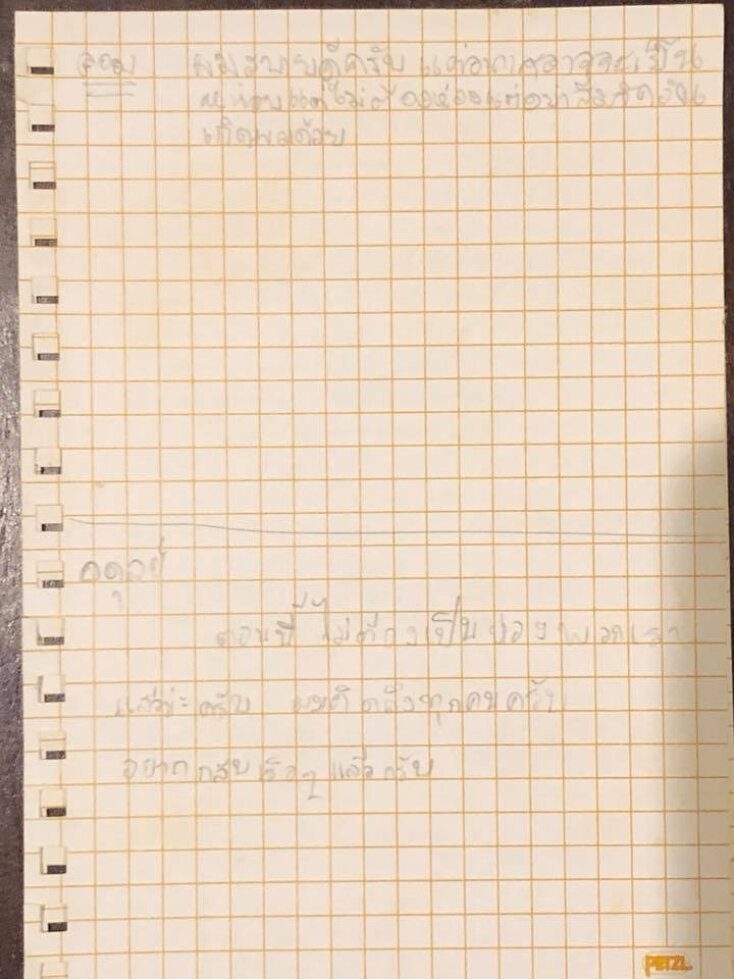 จอม ผมสบายดีครับ แต่อากาศอาจจะเย็น
หน่อยแต่ไม่ต้องห่วงแต่อย่าลืมจัดวัน
เกิดผมด้วย
อดุลย์
ตอนนี้ไม่ต้องเป็นห่วงพวกเรา
แล้วนะครับ ผมคิดถึงทุกคนครับ
อยากกลับเร็วๆ แล้วครับ
PETZL